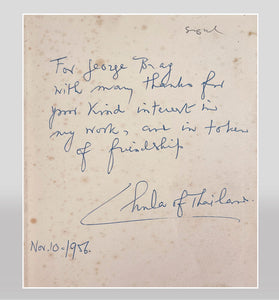 signed
For George Bray
with many thanks for
your kind interest in
my work, and in token
of friendship
Chula of Thailand.
Nov. 10 - 1956.